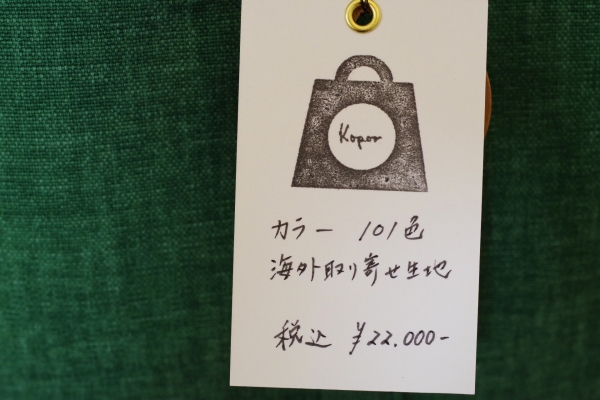 Kopor
カラー 101色
海外取り寄せ生地
税込 ¥22.000-